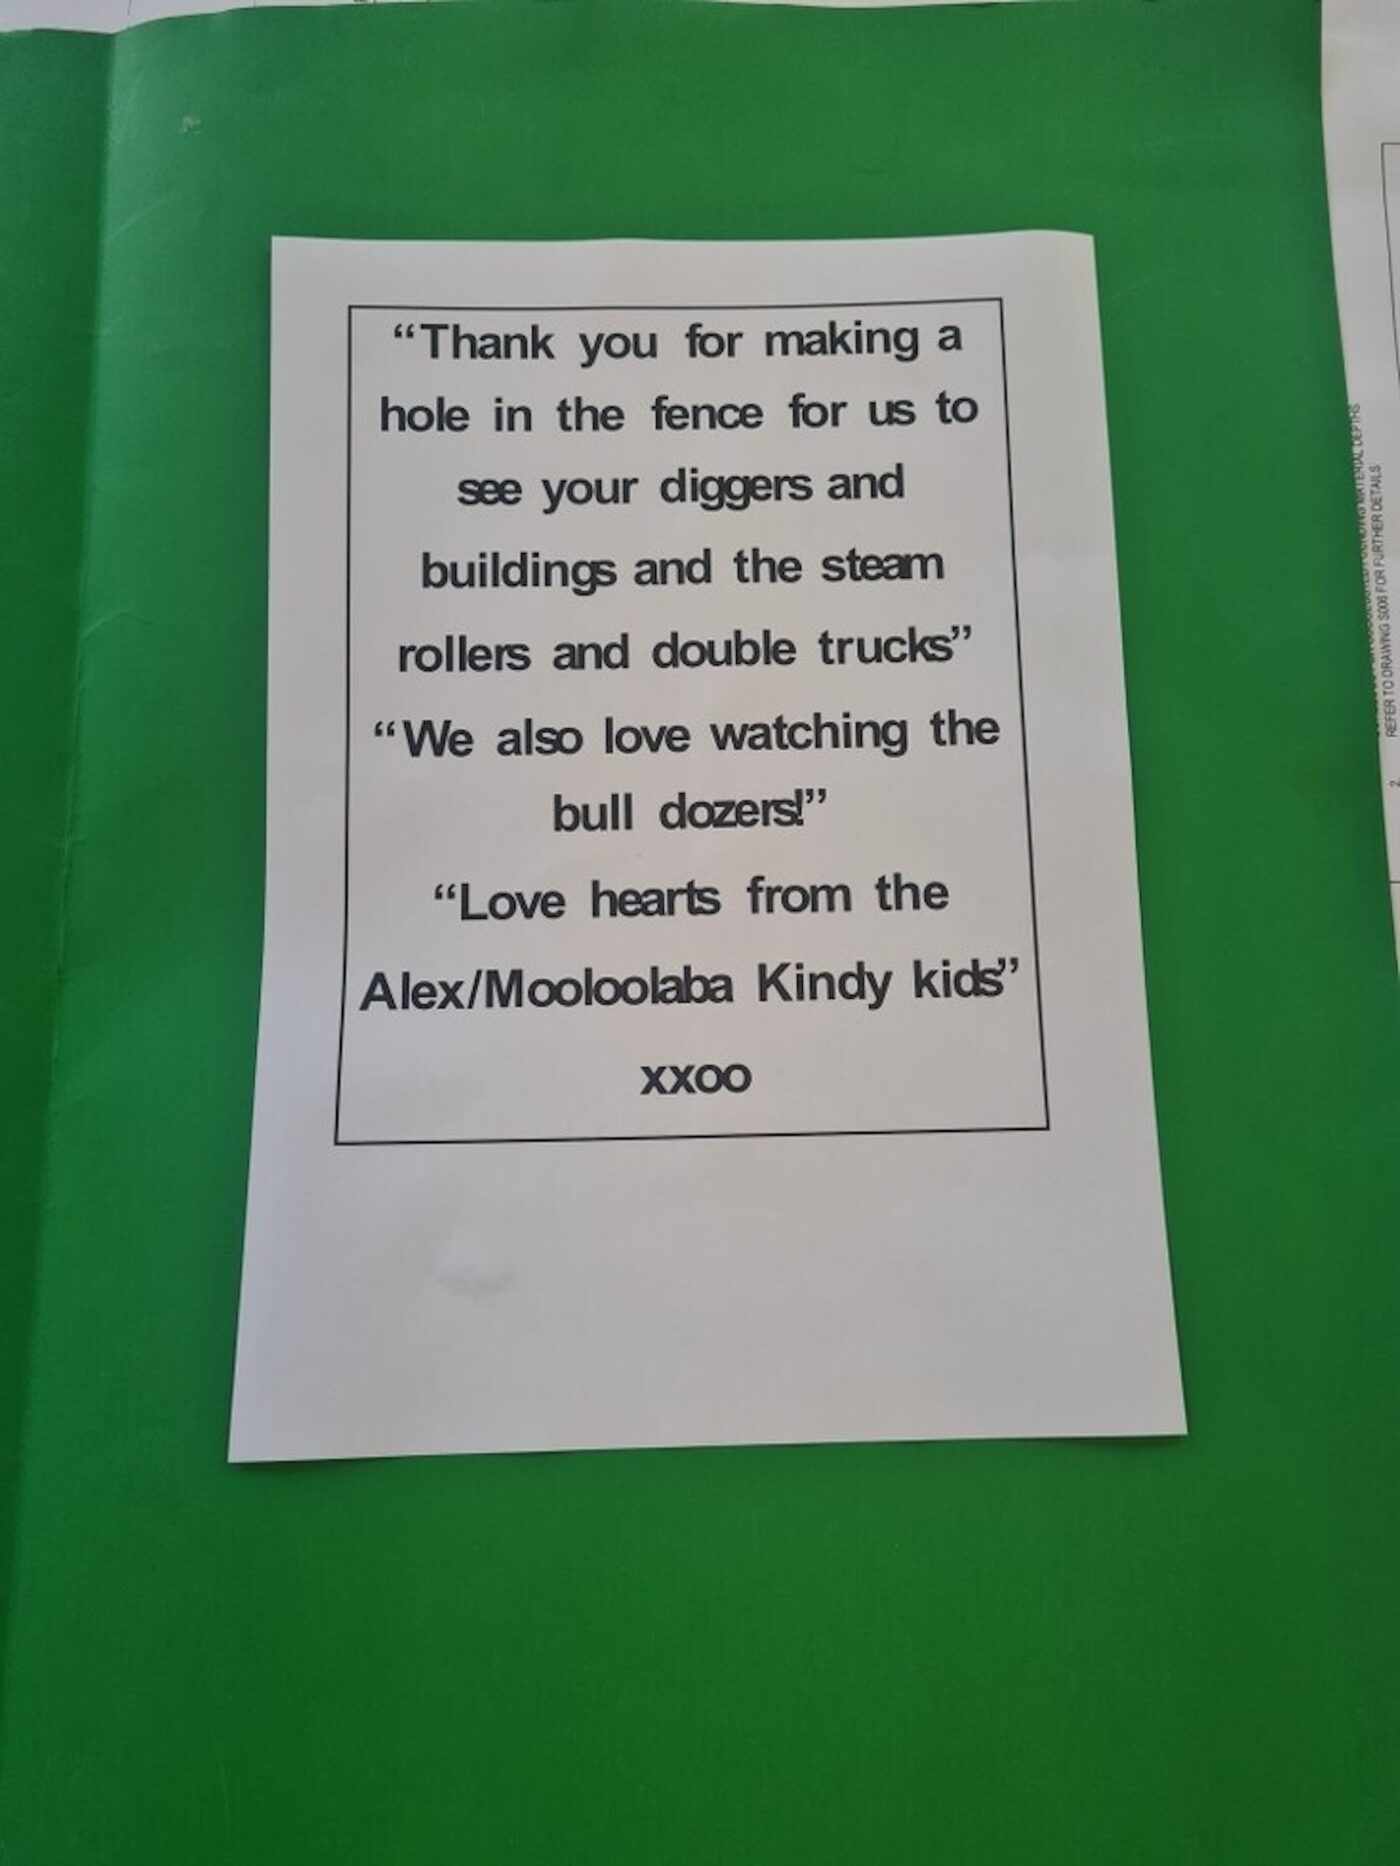 “Thank you for making a
hole in the fence for us to
see your diggers and
buildings and the steam
rollers and double trucks”
“We also love watching the
bull dozers!”
“Love hearts from the
Alex/Mooloolaba Kindy kids”
xxoo
MATERIAL DEPTHS
2. REFER TO DRAWING S006 FOR FURTHER DETAILS